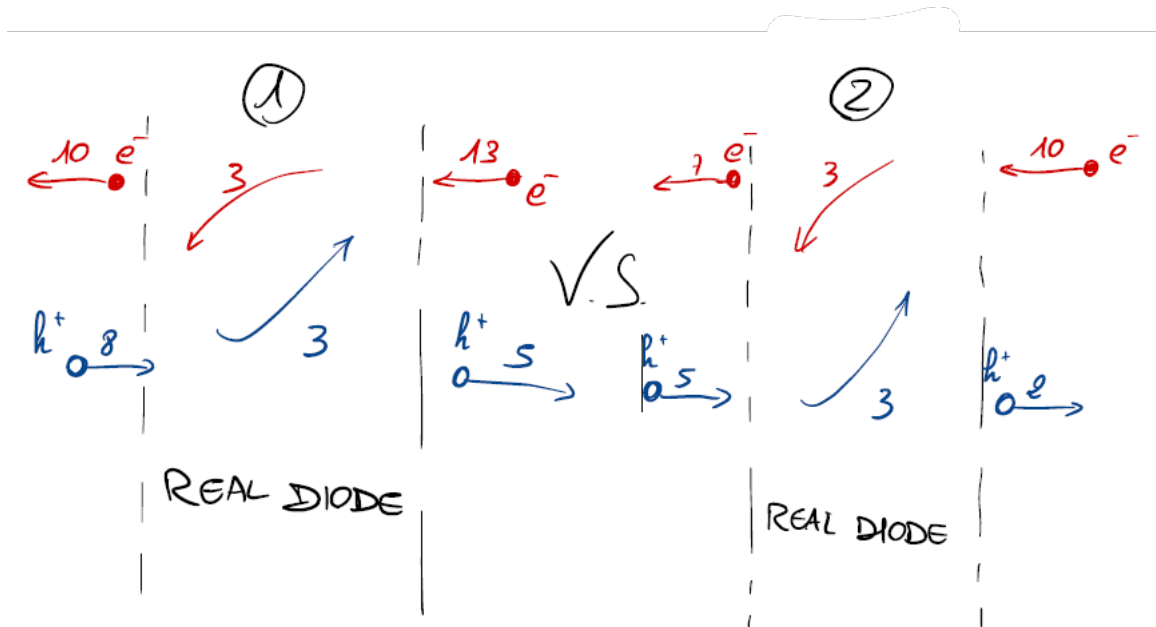 1
10 e⁻
3
13
e⁻
h⁺ 8
3
h⁺ 5
REAL DIODE
V.S.
2
7 e⁻
3
10 e⁻
h⁺ 5
3
h⁺ 2
REAL DIODE